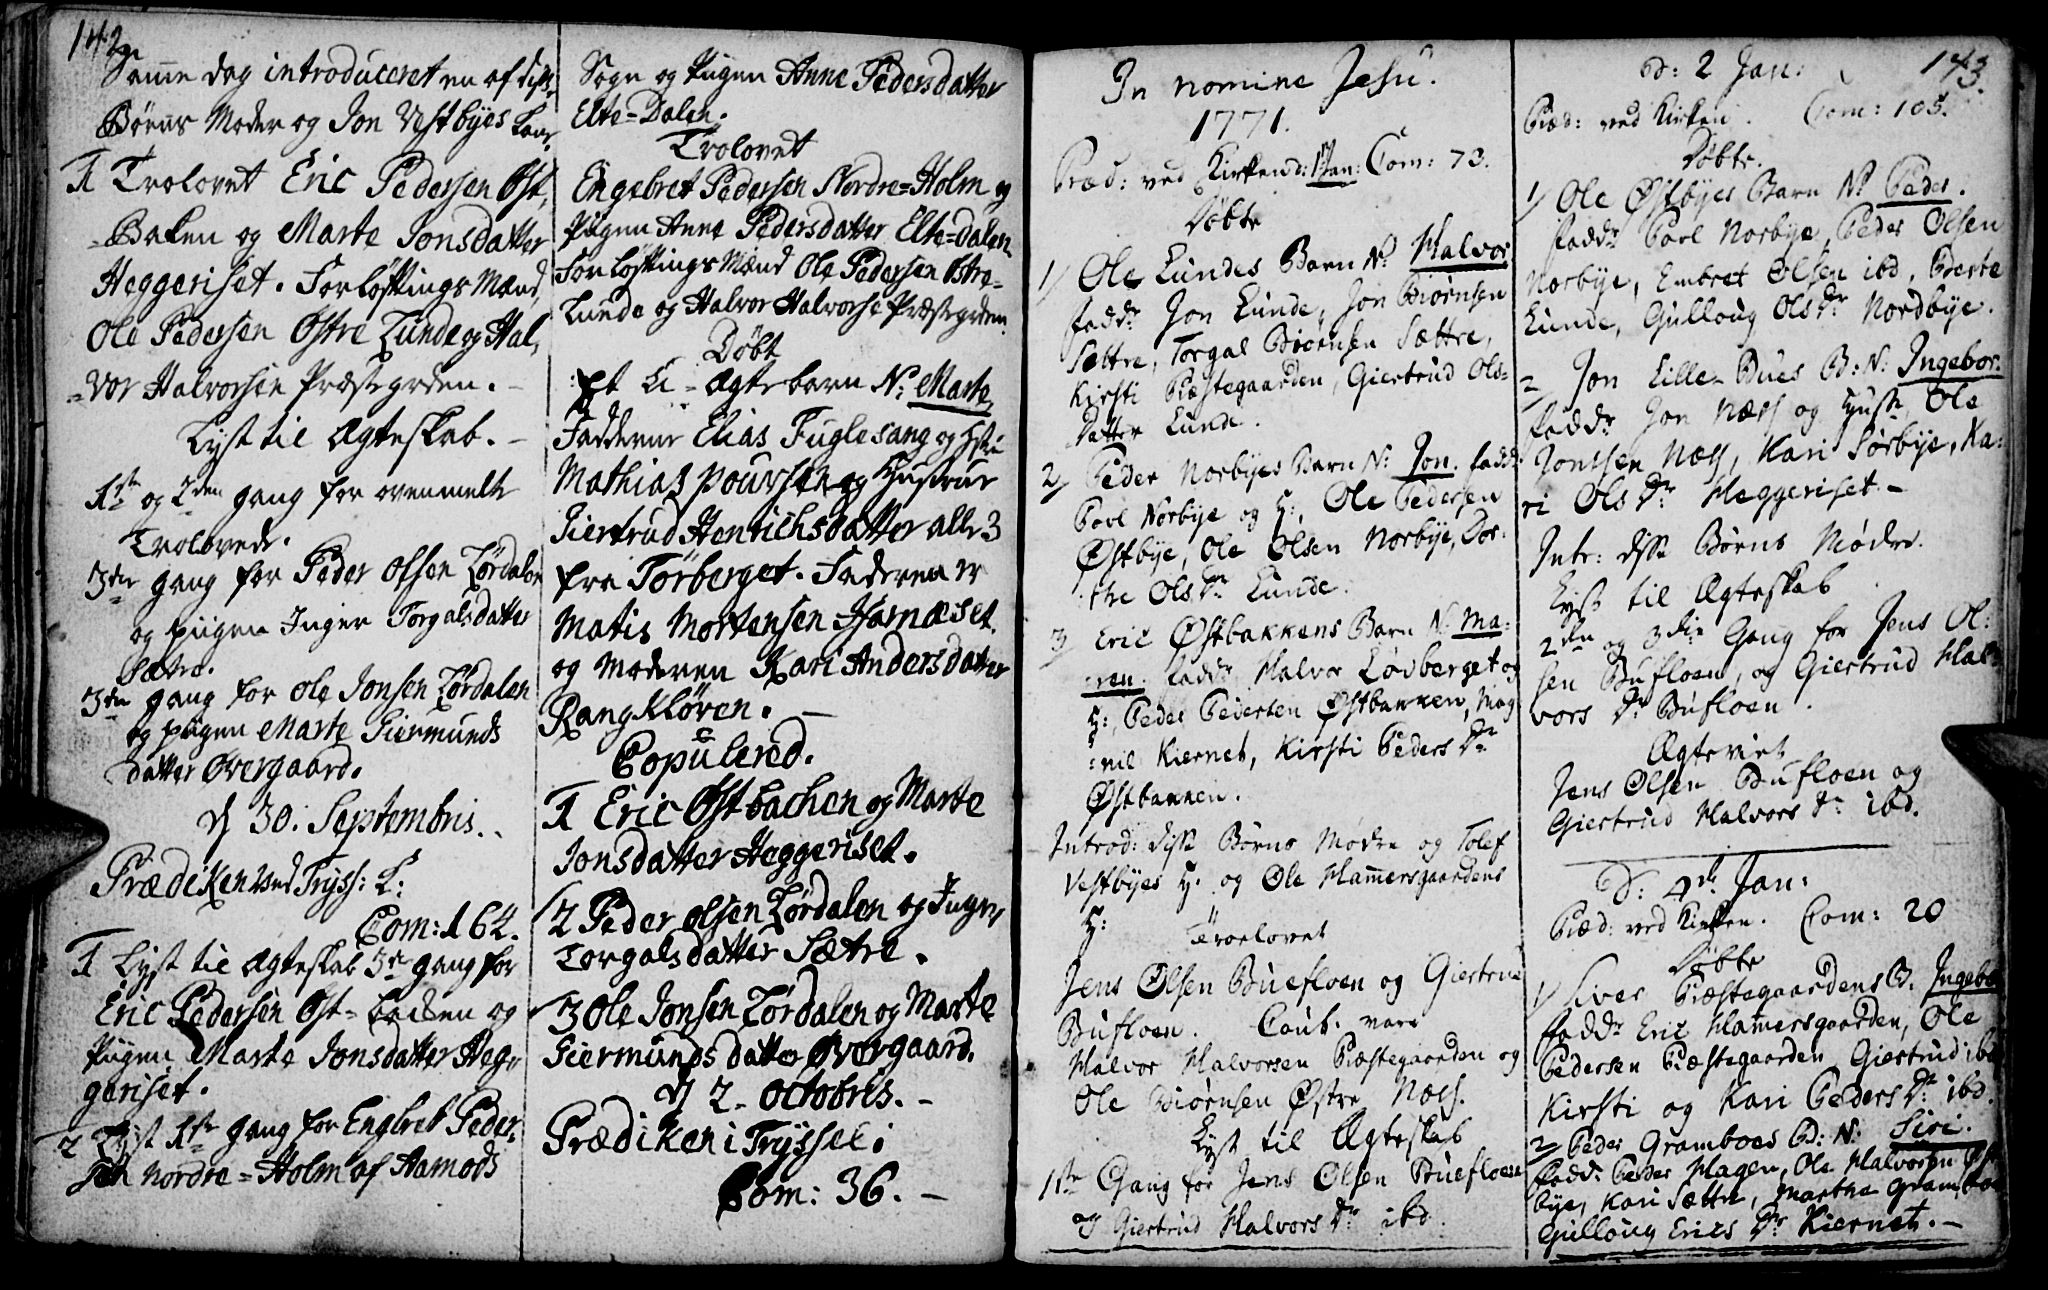 142
Samme dag introduceret en af disse
Børns Moder og Jon Vestbyes Kone
1 Trolovet Eric Pedersen Øst,
-Baken og Marte Jonsdatter
Heggeriset. Forløftings Mænd,
Ole Pedersen Østre Lunde og Hal,
=vor Halvorsen Præstegrden. -
Lyst til Ægteskab. -
1ste og 2den gang for ovenmelte
Trolovede.
3die gang for Peder Olsen Lørdalen
og pigen Inger Torgalsdatter
Sætre.
3die gang for Ole Jonsen Lørdalen
og pigen Marte Giermunds
datter Øvergaard.
d 30. Septembris.
Prædiken ved Tryss: K:
Com: 164.
1 Lyst til Ægteskab 3die gang for
Eric Pedersen Øst-backen og
Pigen Marte Jonsdatter Heg,,
geriset.
2 Lyst 1ste gang for Engbret Peder,
sen Nordre=Holm af Aamods
Sogn og Pigen Anne Pedersdatter
Elte=Dalen.
Trolovet
Engebret Pedersen Nordre=Holm og
Pigen Anne Pedersdatter Elte=dalen
Forløftings Mænd Ole Pedersen Østre=
Lunde og Halvor Halvorse Præstegrden.
Døbt
Et U-Ægte barn N: Marte,
Fadderne Elias Fuglesang og
Mathias Pouvsen og Hustrue
Giertrud Henrichsdatter alle 3
fra Törberget. Faderen er
Matis Mortensen Harnæset
og Moderen Kari Andersdatter
Rangkløven. -
Copulered.
1 Eric Østbachen og Marte
Jonsdatter Heggeriset.
2 Peder Olsen Lørdalen og Inger
Torgalsdatter Sætre.
3 Ole Jonsen Lørdalen og Marte
Giermunds datter Øvergaard.
d 2. Octobris. -
Prædiken i Tryssel:
Com: 36. -
In nomine Jesu.
1771.
Præd: ved Kirken d: 1 Jan: Com: 73.
Døbte
1) Ole Lundes Barn N: Halvor
fadd: Jon Lunde, Jon Biørnsen
Sættre, Torgal Biørnsen Sættre,
Kirsti Præstegaarden, Giertrud Ols-
Datter Lunde.
2) Peder Norbyes Barn N: Jon. fadd:
Povl Norbye og H:, Ole Pedersen
Østbye, Ole Olsen Norbye, Dor:
the Ols Dr Lunde.
3) Eric Østbakkens Barn N: Ma:
:ren. fadd: Halvor Lødberget og
H:, Peder Pedersen Østbakken, Mag
:nil Kiernet, Kirsti Peders Dr
Østbakken.
Introd: disse Børns Mødre og Tolef
Vestbyes H. og Ole Hammersgaardens
H:
Troelovet
Jens Olsen Buefloen og Giertrud
Bufloen. Caut. vare
Halvor Halvorsen Præstegaarden og
Ole Biørnsen Østre Næss.
Lyst til Ægteskab
1ste Gang for Jens Olsen Buefloen
og Giertrud Halvors Dr ibd.
143.
D: 2 Jan:
Præd: ved Kirken. Com: 105.
Døbte.
1) Ole Østbyes Barn N: Peder.
fadd: Povl Norbye, Peder Olsen
Norbye, Embret Olsen ibd, Berte
Lunde, Gulloug Ols Dr Nordbye.
2) Jon Lille-Bues B: N: Ingebor:
fadd: Jon Næss og Hustr, Ole
Jonssen Næss, Kari Sørbye, Ka:
ri Ols Dr Heggeriset. -
Intr: disse Børns Mødre.
Lyst til Ægteskab
2den og 3die Gang for Jens Ol:
sen Bufloen, og Giertrud Hal:
vors Dr Bufloen.
Ægteviet
Jens Olsen Bufloen og
Giertrud Halvors Dr ibd.
D: 4de Jan:
Præd: ved Kirken. Com: 20
Døbte
1) Siver Præstegaardens B. Ingebor
fadd: Eric Hammersgaarden, Ole
Pedersen Præstegaarden, Giertrud ibd
Kirsti og Kari Peders Dr ibd.
2) Peder Gramboes B: N: Siri.
fadd: Peder Hagen, Ole Halvorsen Øst
bye, Kari Sættre, Marthe Gramboe
Gulloug Erics Dr Kiernet. -